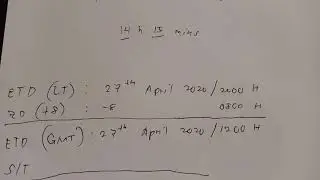 14 h 15 mins
ETD (LT) : 27th April 2020 / 2000 H
ZD (+8) : -8 0800 H
ETD (GMT) : 27th April 2020 / 1200 H
S/T